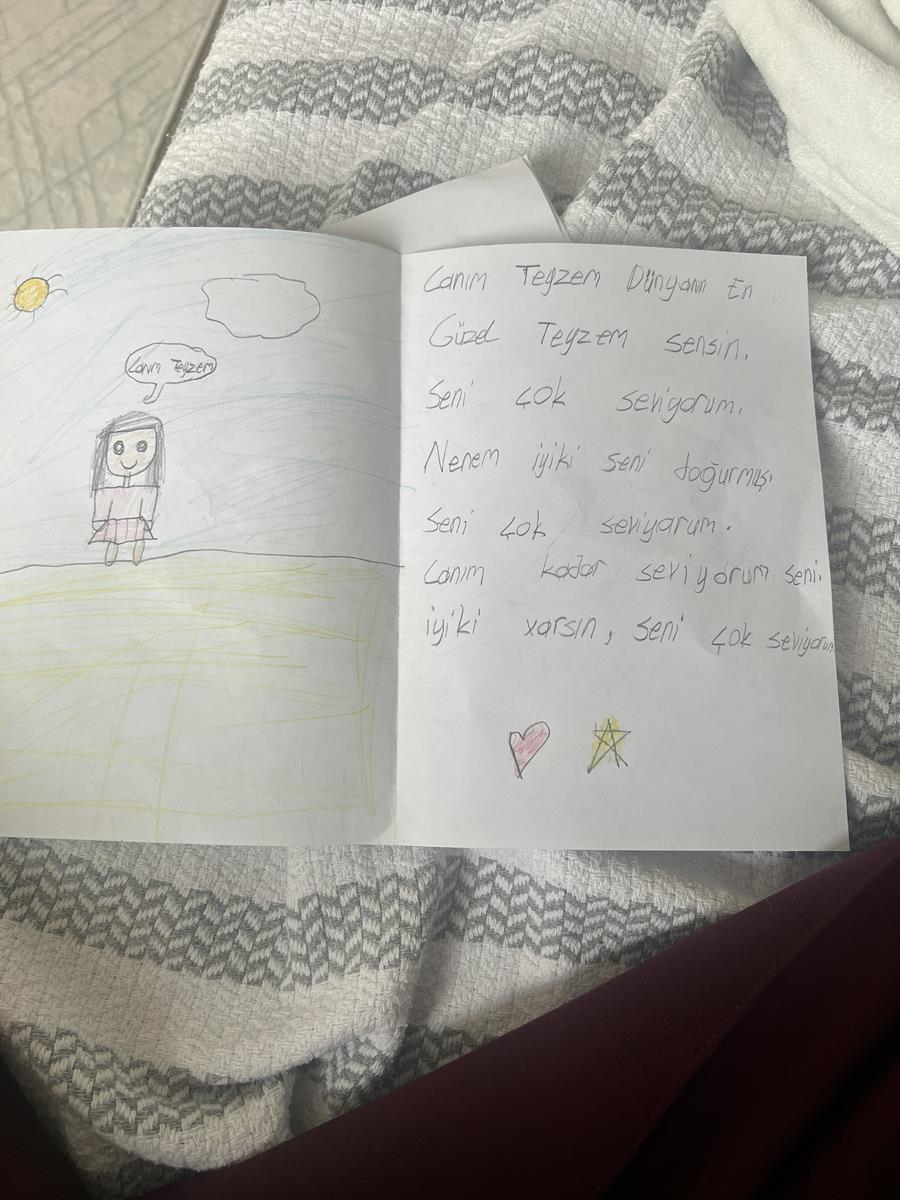 Canım Teyzem
Canım Teyzem Dünyanın En
Güzel Teyzem sensin.
Seni çok seviyorum.
Nenem iyiki seni doğurmuş.
Seni çok seviyorum.
Canım kadar seviyorum seni.
iyiki varsın, seni çok seviyorum